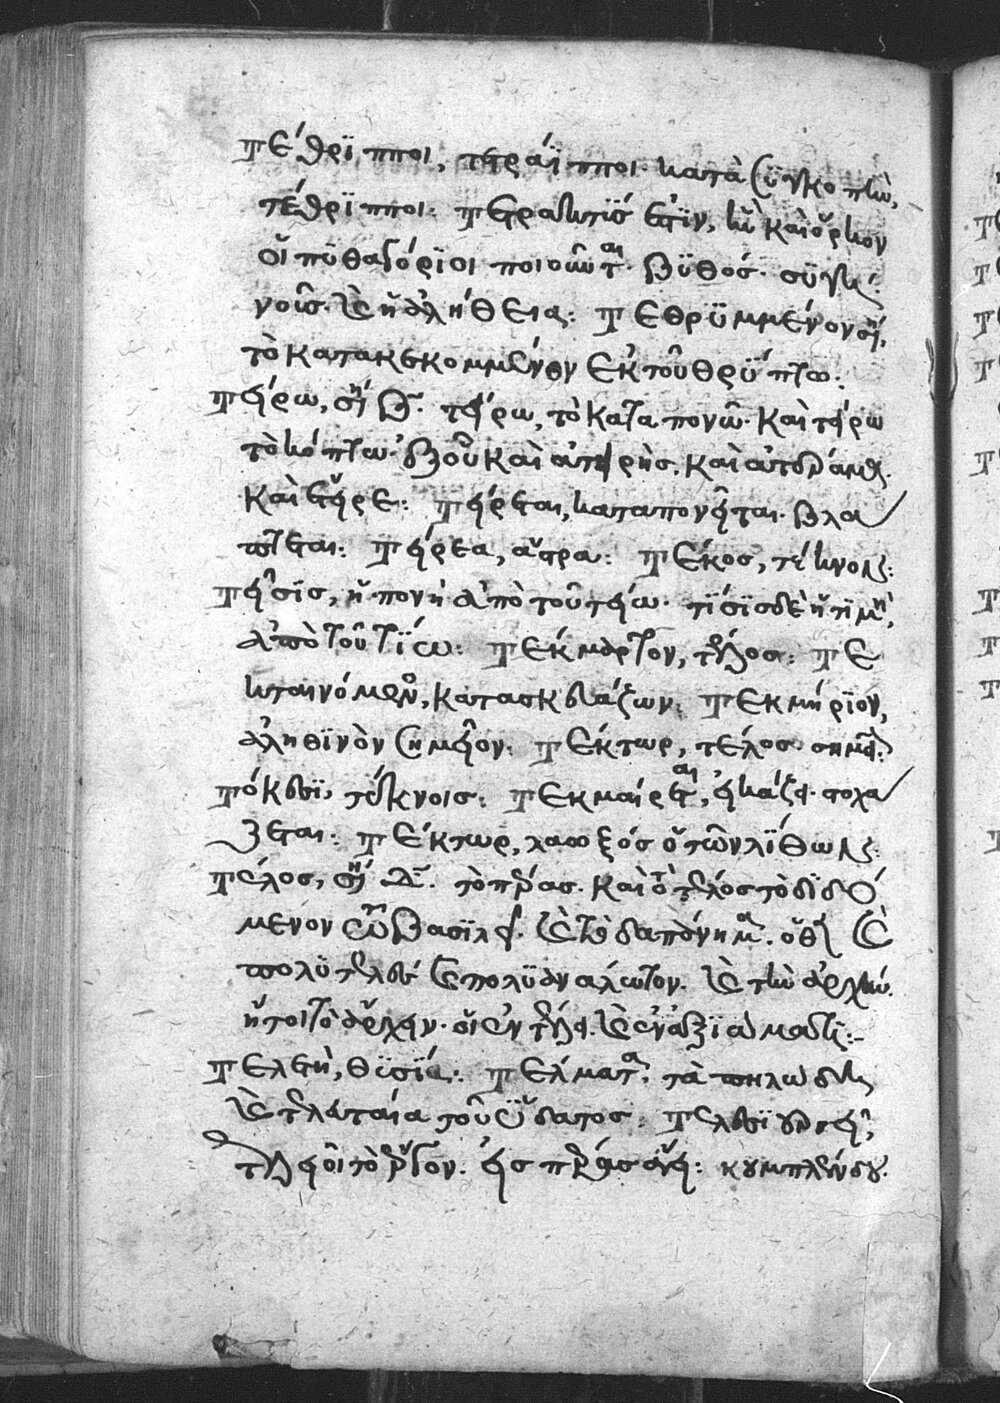 Τέθριπποι, τετράϊπποι· κατὰ συγκοπὴν,
τέθριπποι: Τετρακτύς ἐστιν, ἣν καὶ ὅρκον
οἱ πυθαγόριοι ποιοῦνται· βυθός· σὺν
νοῦς· καὶ ἡ ἀλήθεια: Τεθρυμμένον σημαίνει,
τὸ κατακεκομμένον ἐκ τοῦ θρύπτω:
Τείρω, σημαίνει β. τείρω, τὸ καταπονῶ· καὶ τείρω
τὸ κόπτω· ἐξ οὗ καὶ
καὶ : Τείρεται, καταπονεῖται· βλα
πτεται: Τείρεα, ἄστρα: Τέκος, τέκνον:
Τεῖσις, ἡ πονὴ ἀπὸ τοῦ τείω· τίσις δὲ ἡ τιμὴ,
ἀπὸ τοῦ τίω: Τέκμαρτον, τέλος: Τε
κταινόμενος, κατασκευάζων: Τεκμήριον,
ἀληθινὸν σημεῖον: Τέκτωρ, τέλος σημαίνει:
Τόκεσι, τέκνοις: Τεκμαίρεται, εἰκάζει· στοχά
ζεται: Τέκτωρ, λαοξόος ὁ τῶν λίθων:
Τέλος, σημαίνει δ. τὸ πέρας· καὶ τὸ τέλος τὸ διδό
μενον τῷ βασιλεῖ· καὶ τὸ δαπάνημα· ὅθεν καὶ
πολυτελὲς καὶ πολυανάλωτον· καὶ τὴν ἀρχὴν·
ἤτοι τὸ ἄρχειν· οἱ ἐν τέλει· καὶ ἐν ἀξιώμασι:-
Τελετὴ, θυσία: Τέλματα, τὰ πηλώδη
καὶ τελευταῖα τοῦ ὕδατος: Τελεσιουργεῖ,
τελειοῖ τὸ ἔργον· εἰς πέρας ἄγει: